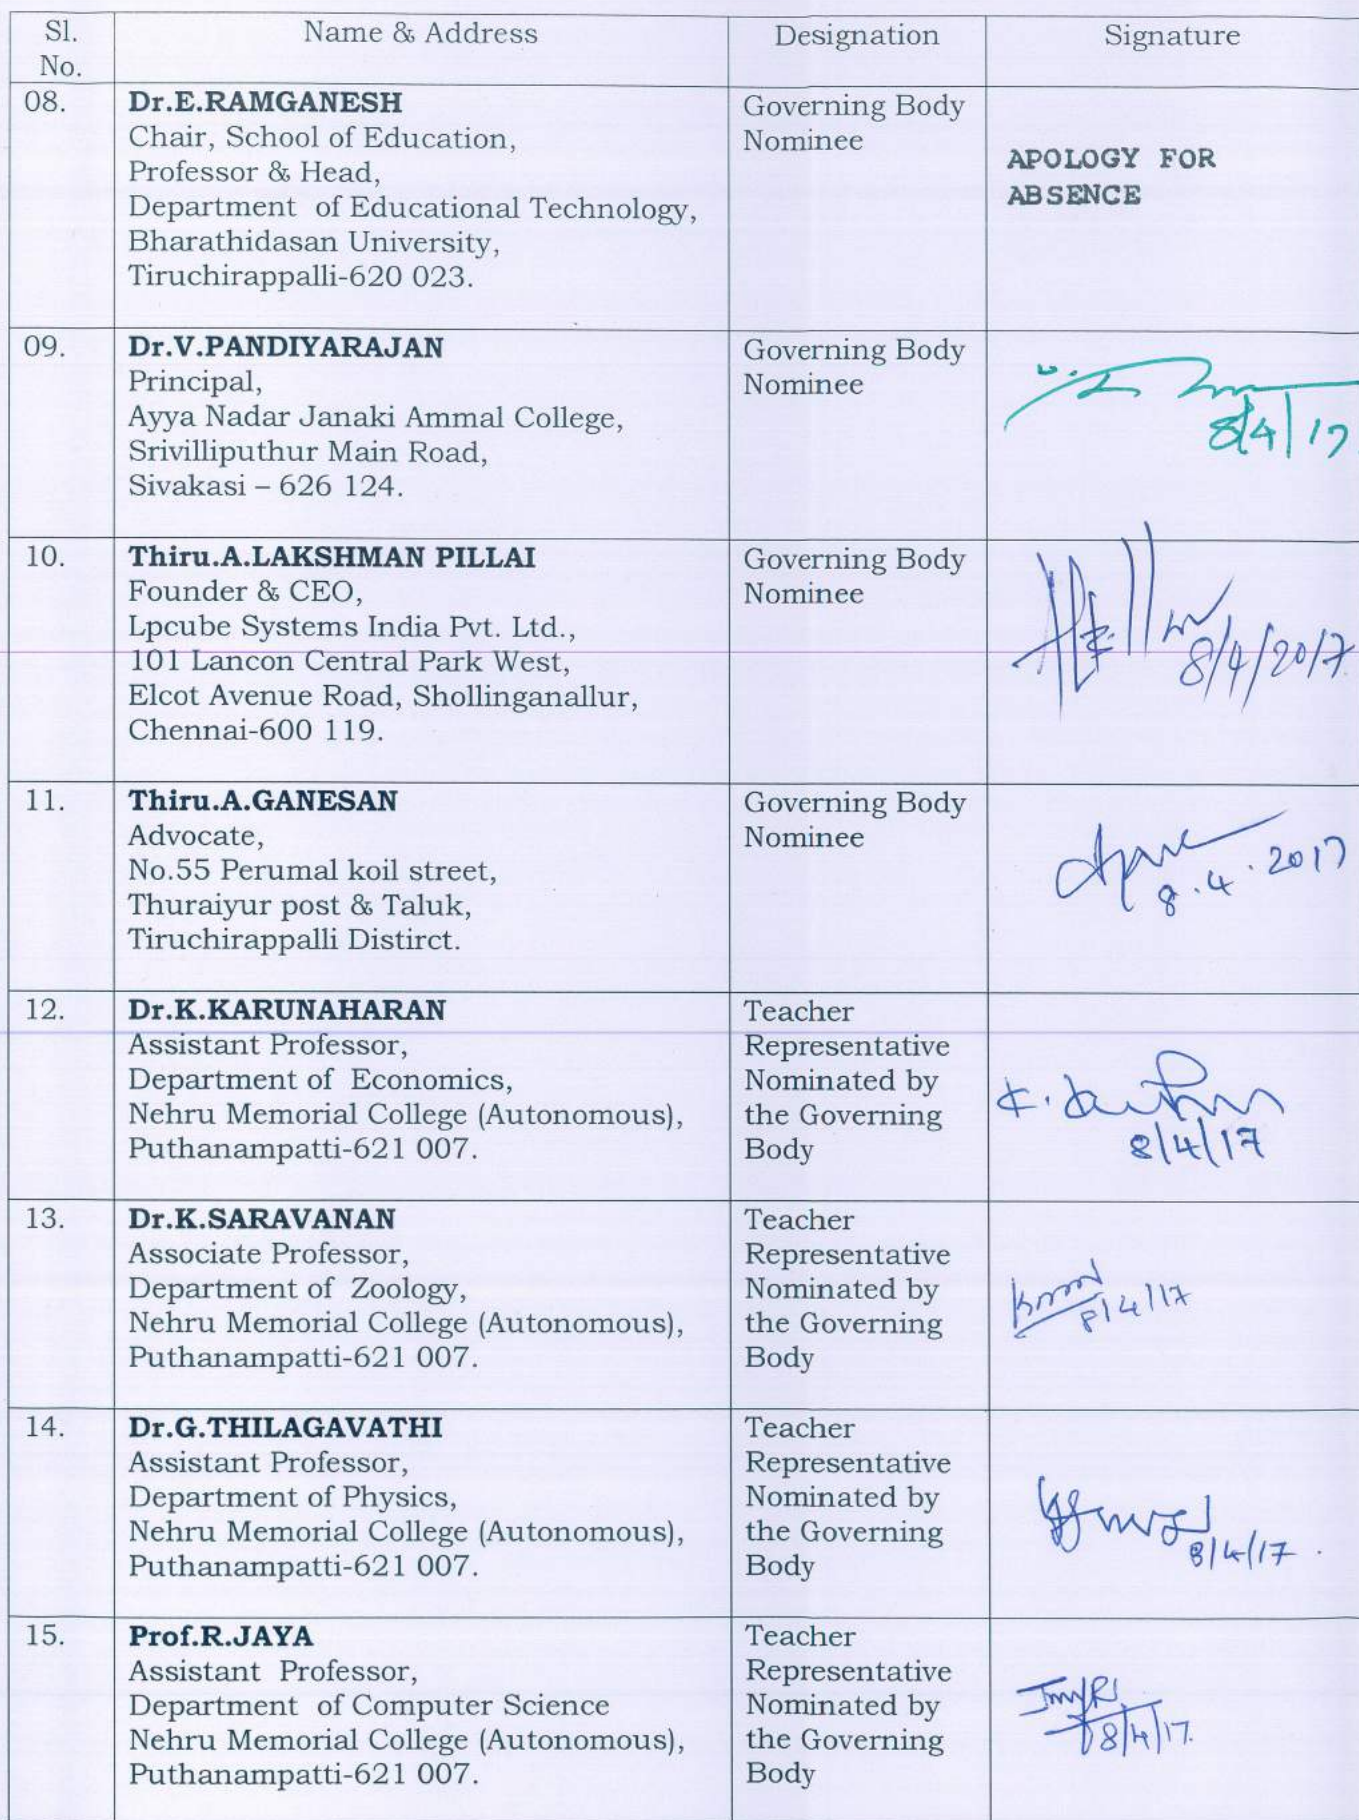 Sl. No. Name & Address Designation Signature
08. Dr.E.RAMGANESH
Chair, School of Education,
Professor & Head,
Department of Educational Technology,
Bharathidasan University,
Tiruchirappalli-620 023.
Governing Body
Nominee
APOLOGY FOR
ABSENCE
09. Dr.V.PANDIYARAJAN
Principal,
Ayya Nadar Janaki Ammal College,
Srivilliputhur Main Road,
Sivakasi – 626 124.
Governing Body
Nominee
8/4/17
10. Thiru.A.LAKSHMAN PILLAI
Founder & CEO,
Lpcube Systems India Pvt. Ltd.,
101 Lancon Central Park West,
Elcot Avenue Road, Shollinganallur,
Chennai-600 119.
Governing Body
Nominee
8/4/2017
11. Thiru.A.GANESAN
Advocate,
No.55 Perumal koil street,
Thuraiyur post & Taluk,
Tiruchirappalli Distirct.
Governing Body
Nominee
8.4.2017
12. Dr.K.KARUNAHARAN
Assistant Professor,
Department of Economics,
Nehru Memorial College (Autonomous),
Puthanampatti-621 007.
Teacher
Representative
Nominated by
the Governing
Body
8/4/17
13. Dr.K.SARAVANAN
Associate Professor,
Department of Zoology,
Nehru Memorial College (Autonomous),
Puthanampatti-621 007.
Teacher
Representative
Nominated by
the Governing
Body
8/4/17
14. Dr.G.THILAGAVATHI
Assistant Professor,
Department of Physics,
Nehru Memorial College (Autonomous),
Puthanampatti-621 007.
Teacher
Representative
Nominated by
the Governing
Body
8/4/17.
15. Prof.R.JAYA
Assistant Professor,
Department of Computer Science
Nehru Memorial College (Autonomous),
Puthanampatti-621 007.
Teacher
Representative
Nominated by
the Governing
Body
8/4/17.